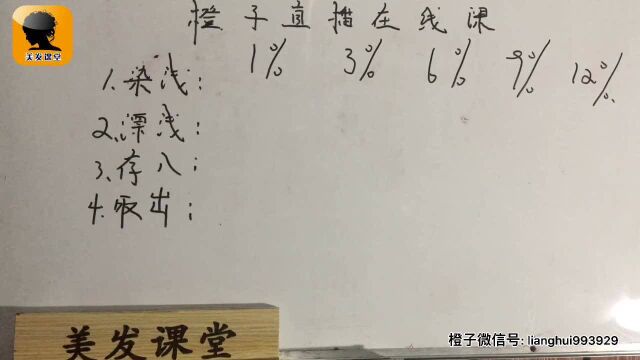 橙子直播在线课
美发课堂
1% 3% 6% 9% 12%
1.染浅:
2.漂浅:
3.存入:
4.吸出:
美发课堂
橙子微信号: lianghui993929